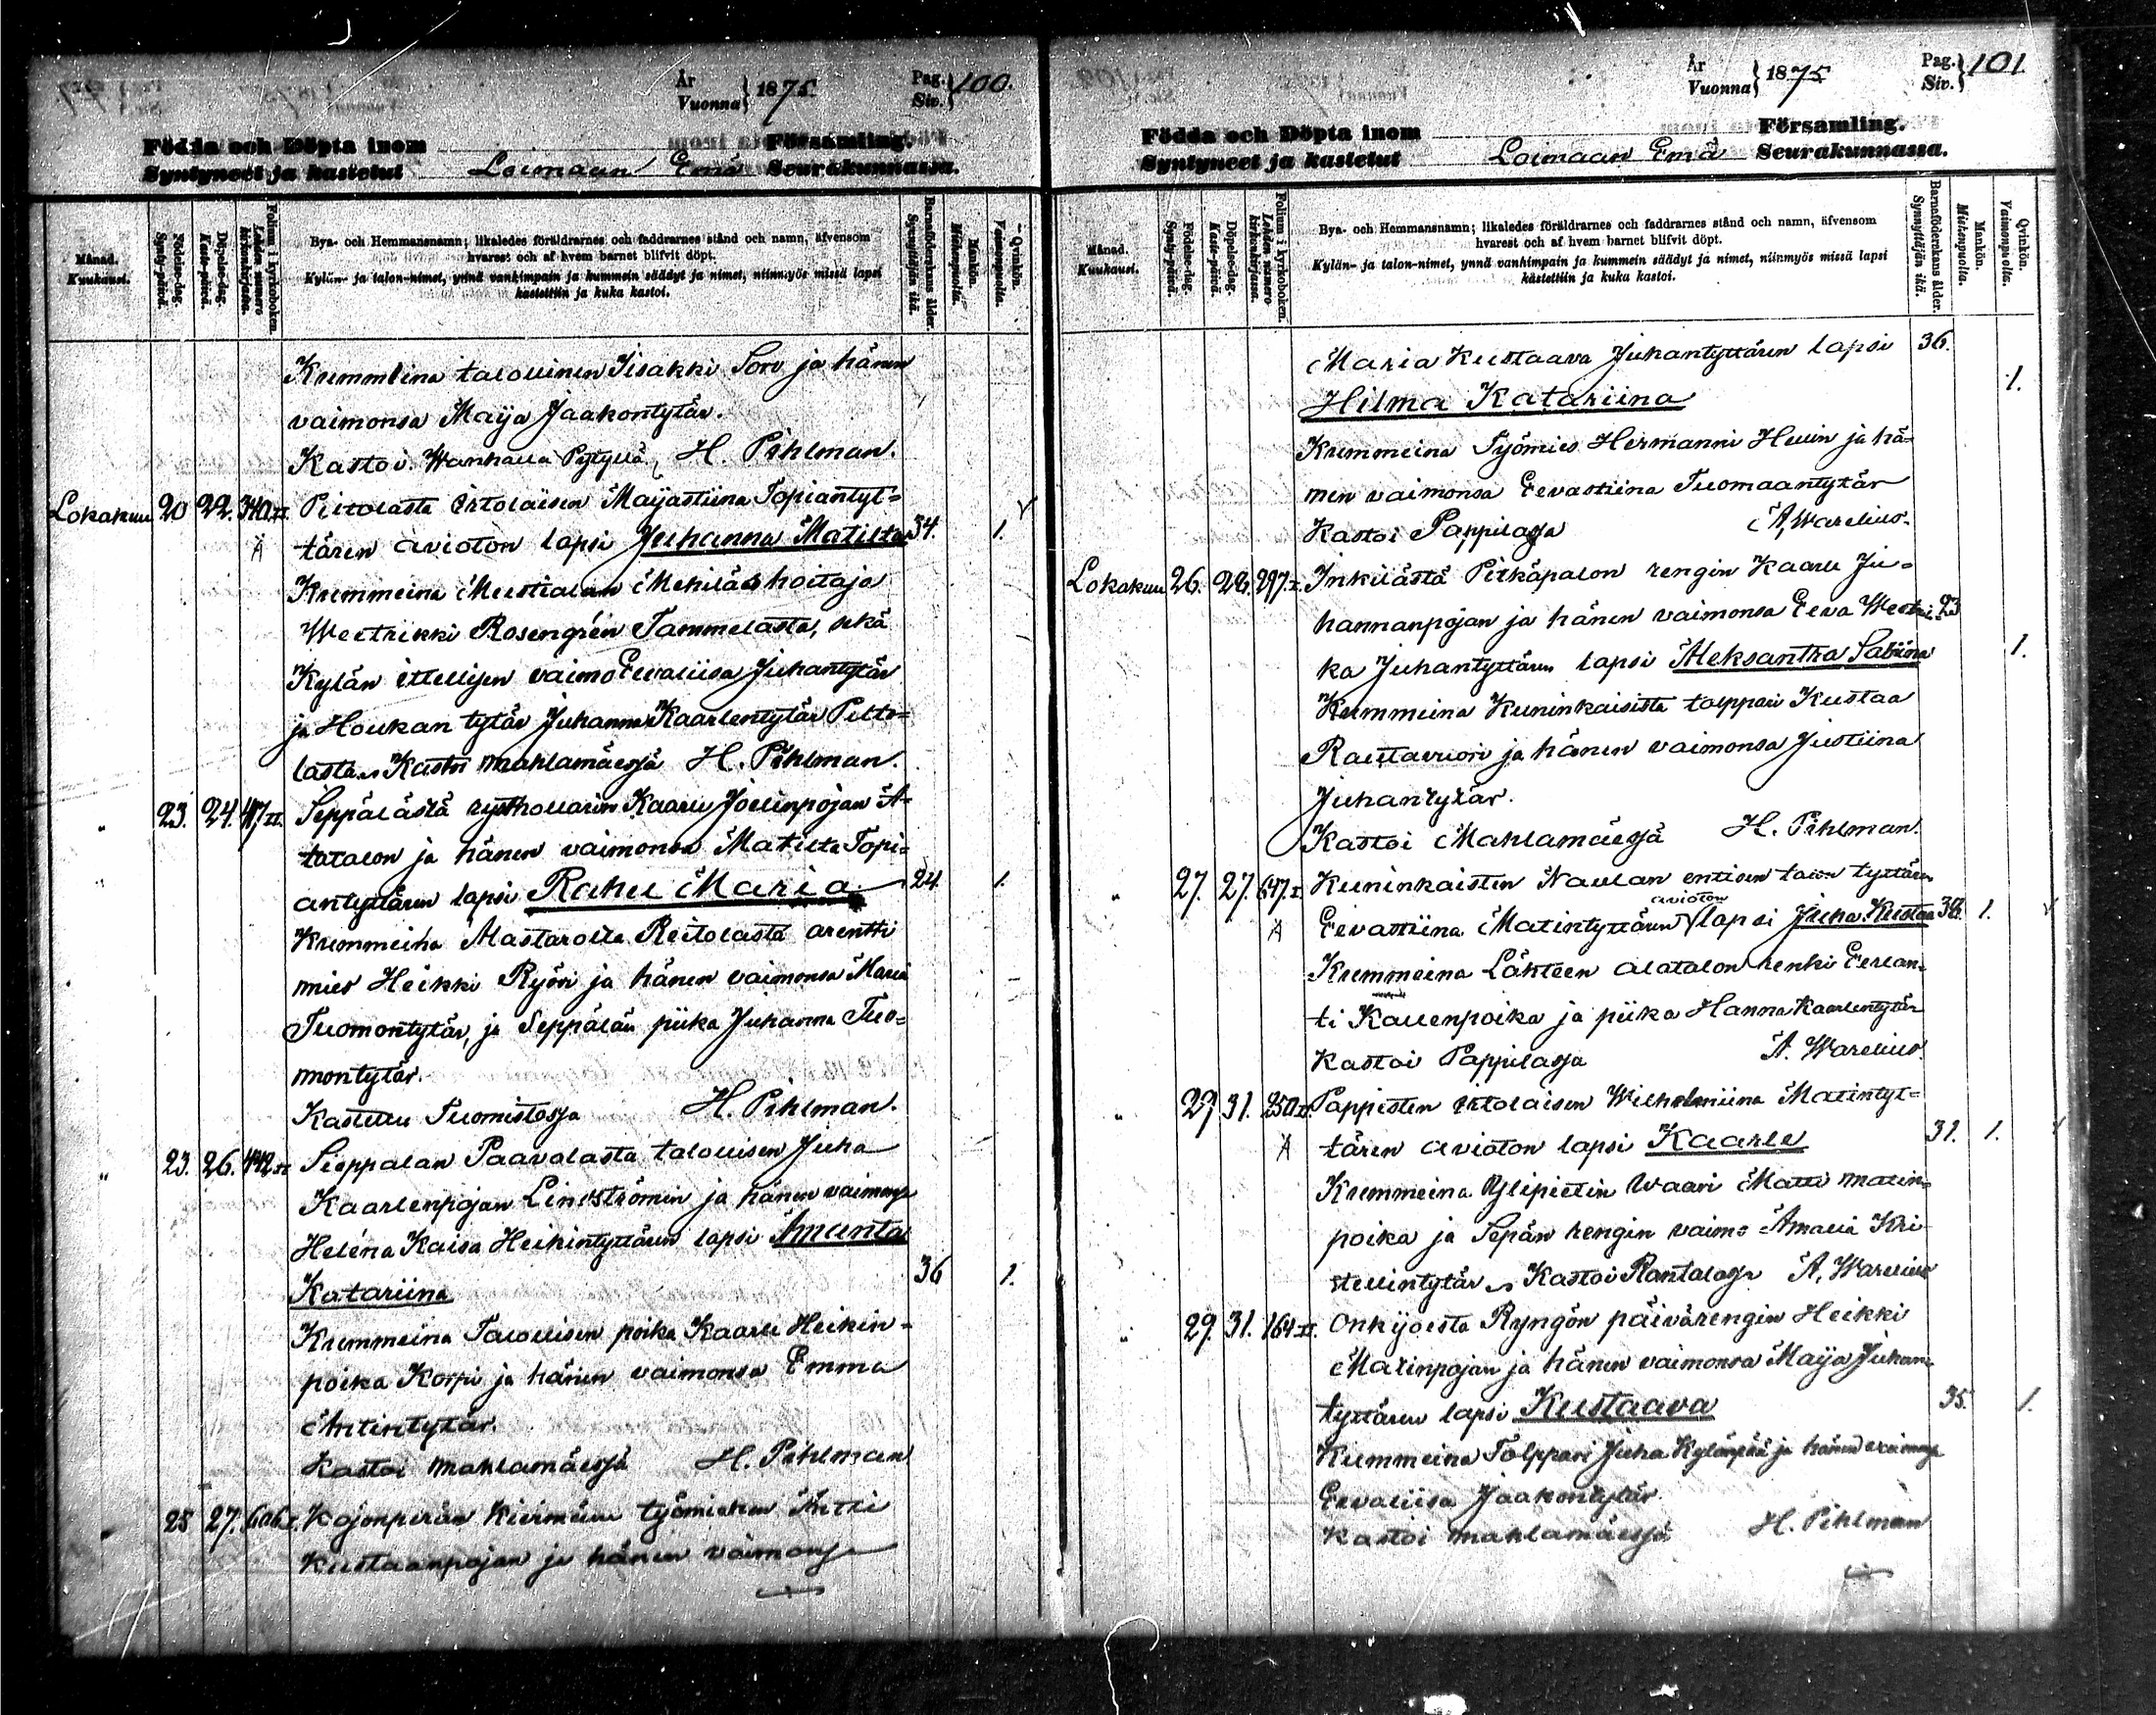 År
Vuonna } 1875
Pag.
Siv. } 100.
Födda och Döpta inom Församling.
Syntyneet ja kastetut Loimaan Emä Seurakunnassa.
Månad.
Kuukausi.
Födelse-dag.
Synty-päivä.
Döpelse-dag.
Kaste-päivä.
Folium i kyrkoboken.
Lehden numero kirkonkirjassa.
Bya- och Hemmansnamn; likaledes föräldrarnes och faddrarnes stånd och namn, äfvensom
hvarest och af hvem barnet blifvit döpt.
Kylän- ja talon-nimet, ynnä vanhimpain ja kummein säädyt ja nimet, niinmyös missä lapsi
kastettiin ja kuka kastoi.
Barnaföderskans ålder.
Synnyttäjän ikä.
Mankön.
Miehenpuolta.
Qvinkön.
Vaimonpuolta.
Kummeina talollinen Iisakki Sorv ja hänen
vaimonsa Maija Jaakontytär.
Kastoi Wanhalla Pytyllä, H. Pihlman.
Lokakuu 20 22. 340 II. Peltolasta itsolaisen Maijastiina Topiantyt-
Ä tären avioton lapsi Juhanna Matilta 34. 1.
Kummeina Mustialan Mehiläshoitaja
Weetrikki Rosengrén Tammelasta, sekä
Kylän itsellisen vaimo Eevaliisa Juhantytär
ja Houkan tytär Juhanna Kaarlentytär Pelto-
lasta. Kastoi Mahlamäessä H. Pihlman.
" 23. 24. 417 II. Seppälästä rysthollarin Kaarle Joelinpojan A-
latalon ja hänen vaimonsa Matilta Topi-
antyttären lapsi Rahu Maria 24. 1.
Kummeina Alastarolta Reitolasta arentti
mies Heikki Ryöri ja hänen vaimonsa Maria
Tuomontytär, ja Seppälän piika Juhanna Tuo-
montytär.
Kastettu Tuomistossa H. Pihlman.
" 23. 26. 442 II Sieppalan Paavolasta talollisen Juha
Kaarlenpojan Lindströmin ja hänen vaimonsa
Heléna Kaisa Heikintyttären lapsi Amanta
Katariina 36 1.
Kummeina Talollisen poika Kaarle Heikin-
poika Korpi ja hänen vaimonsa Emma
Antintytär.
Kastoi Mahlamäessä H. Pihlman
" 25 27. 606 I. Kojonperän työmiehen Antti
Kustaanpojan ja hänen vaimonsa
År
Vuonna } 1875
Pag.
Siv. } 101.
Födda och Döpta inom Församling.
Syntyneet ja kastetut Loimaan Emä Seurakunnassa.
Månad.
Kuukausi.
Födelse-dag.
Synty-päivä.
Döpelse-dag.
Kaste-päivä.
Folium i kyrkoboken.
Lehden numero kirkonkirjassa.
Bya- och Hemmansnamn; likaledes föräldrarnes och faddrarnes stånd och namn, äfvensom
hvarest och af hvem barnet blifvit döpt.
Kylän- ja talon-nimet, ynnä vanhimpain ja kummein säädyt ja nimet, niinmyös missä lapsi
kastettiin ja kuka kastoi.
Barnaföderskans ålder.
Synnyttäjän ikä.
Mankön.
Miehenpuolta.
Qvinkön.
Vaimonpuolta.
Maria Kustaava Juhantyttären lapsi 36.
Hilma Katariina 1.
Kummeina Työmies Hermanni Helin ja hä-
nen vaimonsa Eevastiina Tuomaantytär
Kastoi Pappilassa A. Warelius.
Lokakuu 26. 28. 297. I. Inkilästä Pitkäpalon rengin Kaarle Ju-
hannanpojan ja hänen vaimonsa Eeva Weetrii- 23
ka Juhantyttären lapsi Aleksantra Sabiina 1.
Kummeina Kuninkaisista tolppari Kustaa
Rautavuori ja hänen vaimonsa Justiina
Juhantytär.
Kastoi Mahlamäessä H. Pihlman.
" 27. 27. 647. I Kuninkaisten Naulan entisen talon tyttären
avioton
A Eevastiina Matintyttären lapsi Juha Kustaa 38. 1.
Kummeina Lähteen alatalon renki Eerlan-
ti Kallenpoika ja piika Hanna Kaarlentytär
Kastoi Pappilassa A. Warelius.
" 27 31. 250 II Pappisten itsolaisen Wilhelmiina Matintyt-
A tären avioton lapsi Kaarle 31. 1.
Kummeina Ylipietin Waari Matti Matin-
poika ja Sepän rengin vaimo Amalia Kri-
stellintytär. Kastoi Rantalassa A. Warelius
" 29. 31. 164 II. Onkijoesta Ryngön päivärengin Heikki
Matinpojan ja hänen vaimonsa Maija Juhan-
tyttären lapsi Kustaava 35. 1.
Kummeina Tolppari Juha Kylänpää ja hänen vaimonsa
Eevaliisa Jaakontytär.
Kastoi Mahlamäessä H. Pihlman